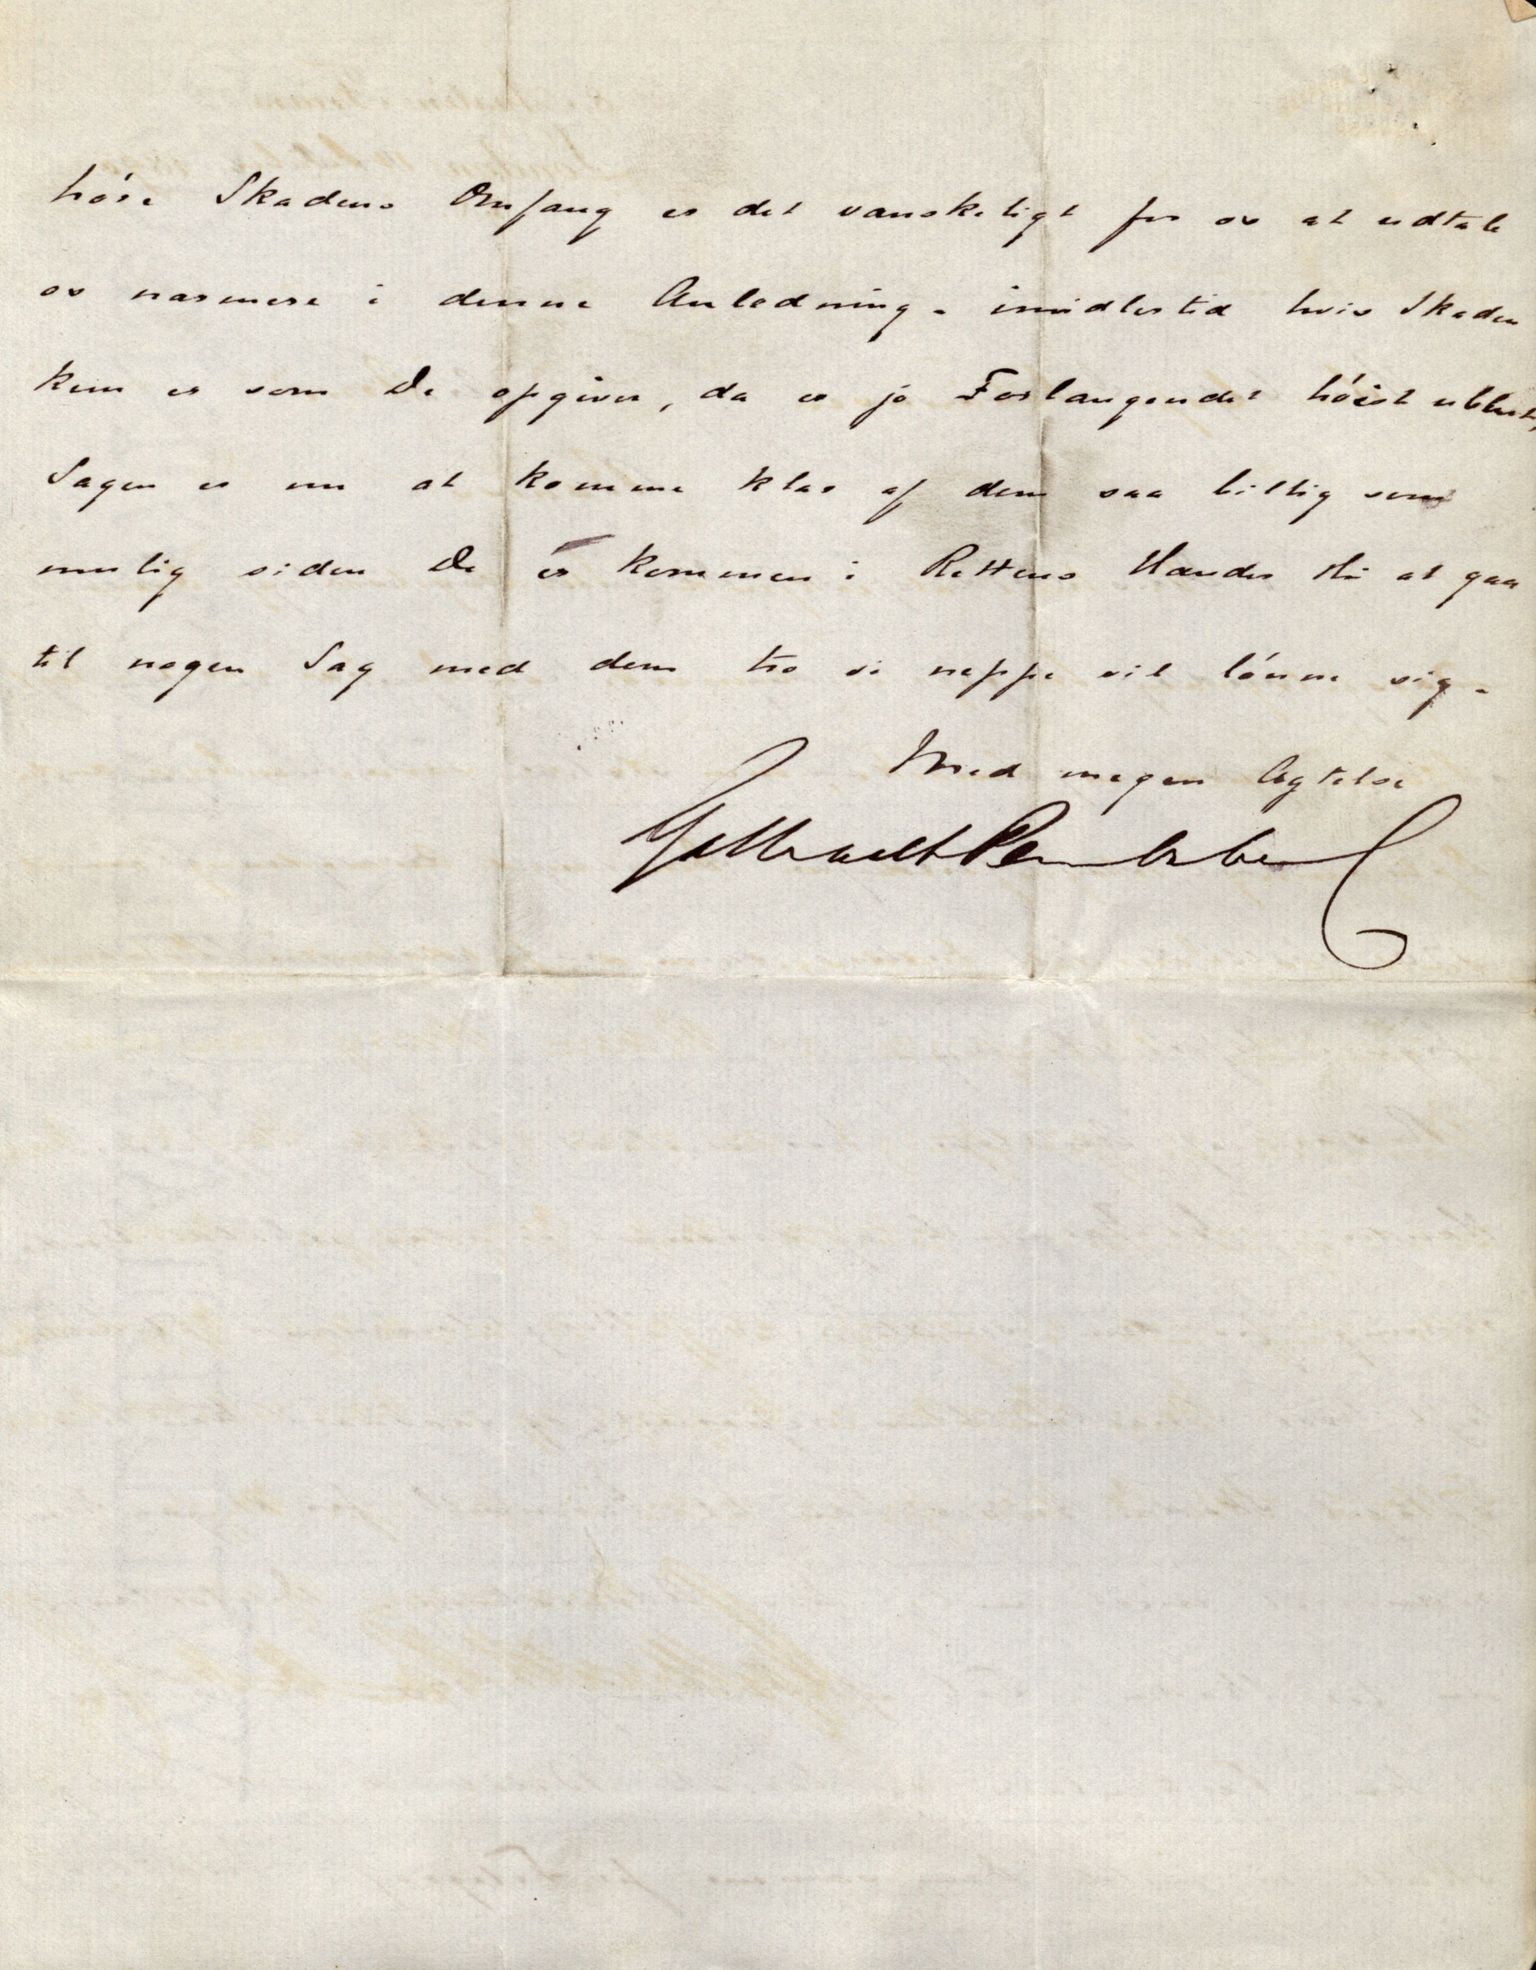 höre Skadens Omfang er det vanskeligt for os at udtale
os nærmere i denne Anledning - imidlertid hvis Skaden
kun er som De opgiver, da er jo Forlangendet höist ublut,
Sagen er nu at komme klar af dem saa billig som
mulig siden De er kommen i Rettens Hænder thi at gaa
til nogen Sag med dem tro vi neppe vil lönne sig -
Med megen Agtelse